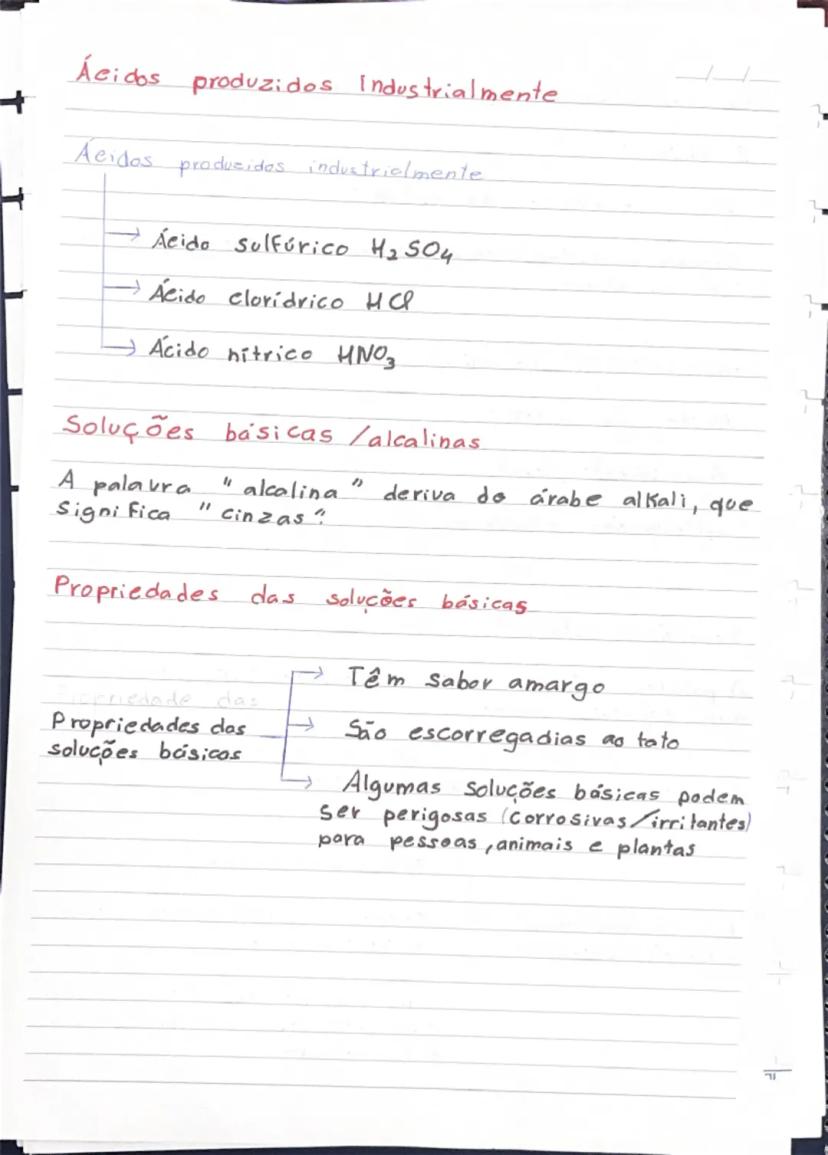 Ácidos produzidos Industrialmente
Ácidos produzidos industrialmente
→ Ácido sulfúrico H₂SO₄
→ Ácido clorídrico HCl
→ Ácido nítrico HNO₃
Soluções básicas /alcalinas
A palavra "alcalina" deriva do árabe alkali, que
significa "cinzas".
Propriedades das soluções básicas
→ Têm sabor amargo
Propriedade das
Propriedades das
soluções básicas
→ São escorregadias ao tato
→ Algumas soluções básicas podem
ser perigosas (corrosivas/irritantes)
para pessoas, animais e plantas